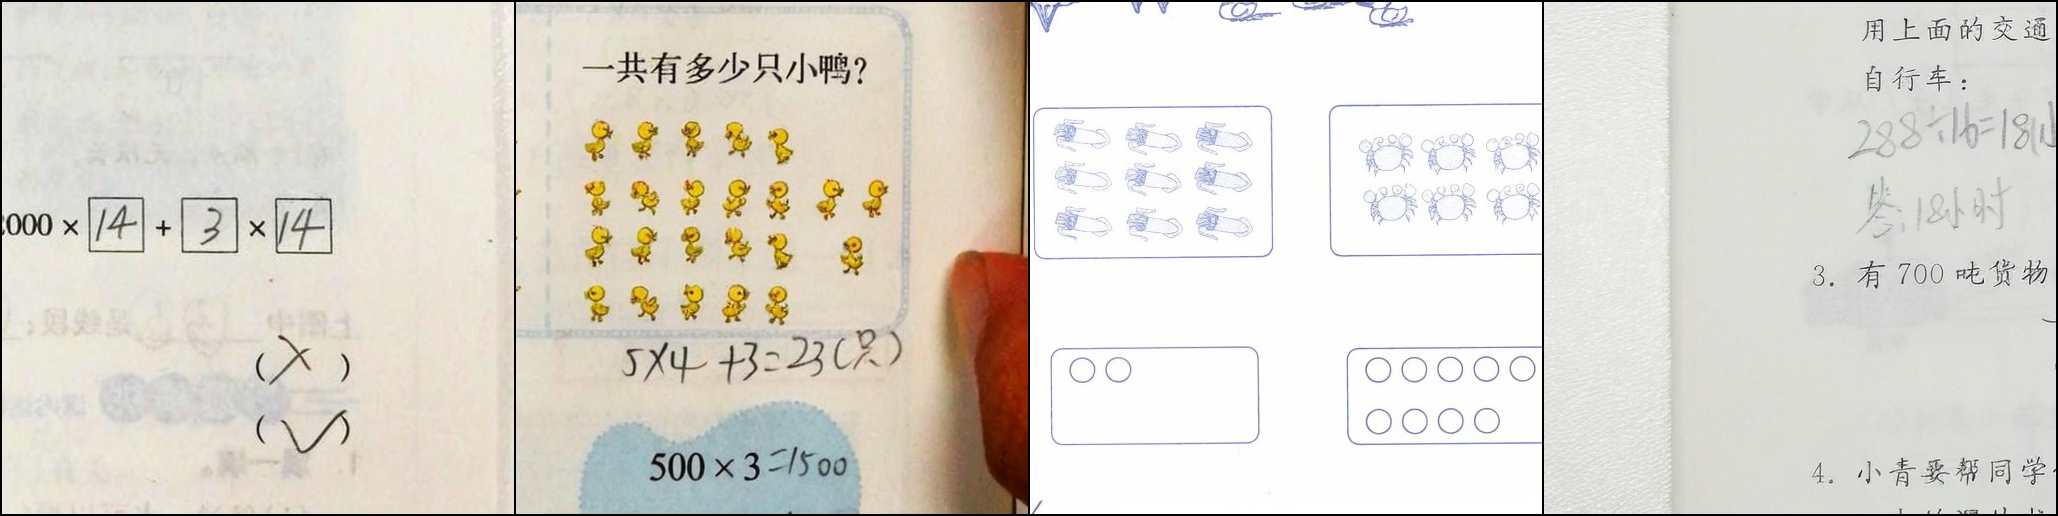 2000 × 14 + 3 × 14
(×)
(√)
一共有多少只小鸭?
5×4+3=23(只)
500×3=1500
用上面的交通
自行车:
288÷16=18(小
答:18小时
3. 有 700 吨货物
4. 小青要帮同学